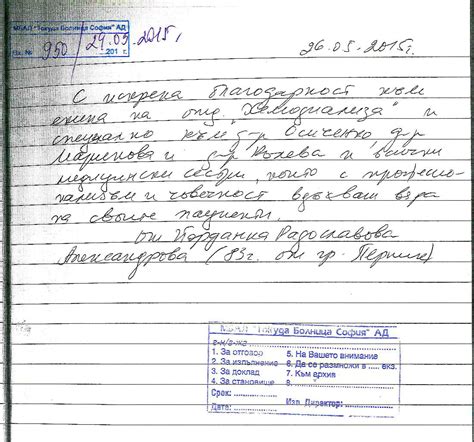 МБАЛ "Токуда Болница София" АД
Вх. № 950 / 29.05.2015г.
26.05.2015г.
С искрена благодарност към
екипа на отд. "Хемодиализа" и
специално към д-р Осиченко, д-р
Маринова и д-р Вълева и всички
медицински сестри, които с професио-
нализъм и човечност вдъхват вяра
на своите пациенти.
от Йорданка Радославова
Александрова (83г. от гр. Перник)
МБАЛ "Токуда Болница София" АД
г-н/г-жа
1. За отговор 5. На Вашето внимание
2. За изпълнение 6. Да се размножи в ..... екз.
3. За доклад 7. Към архив
4. За становище 8.
Срок:
Дата: Изп. Директор: